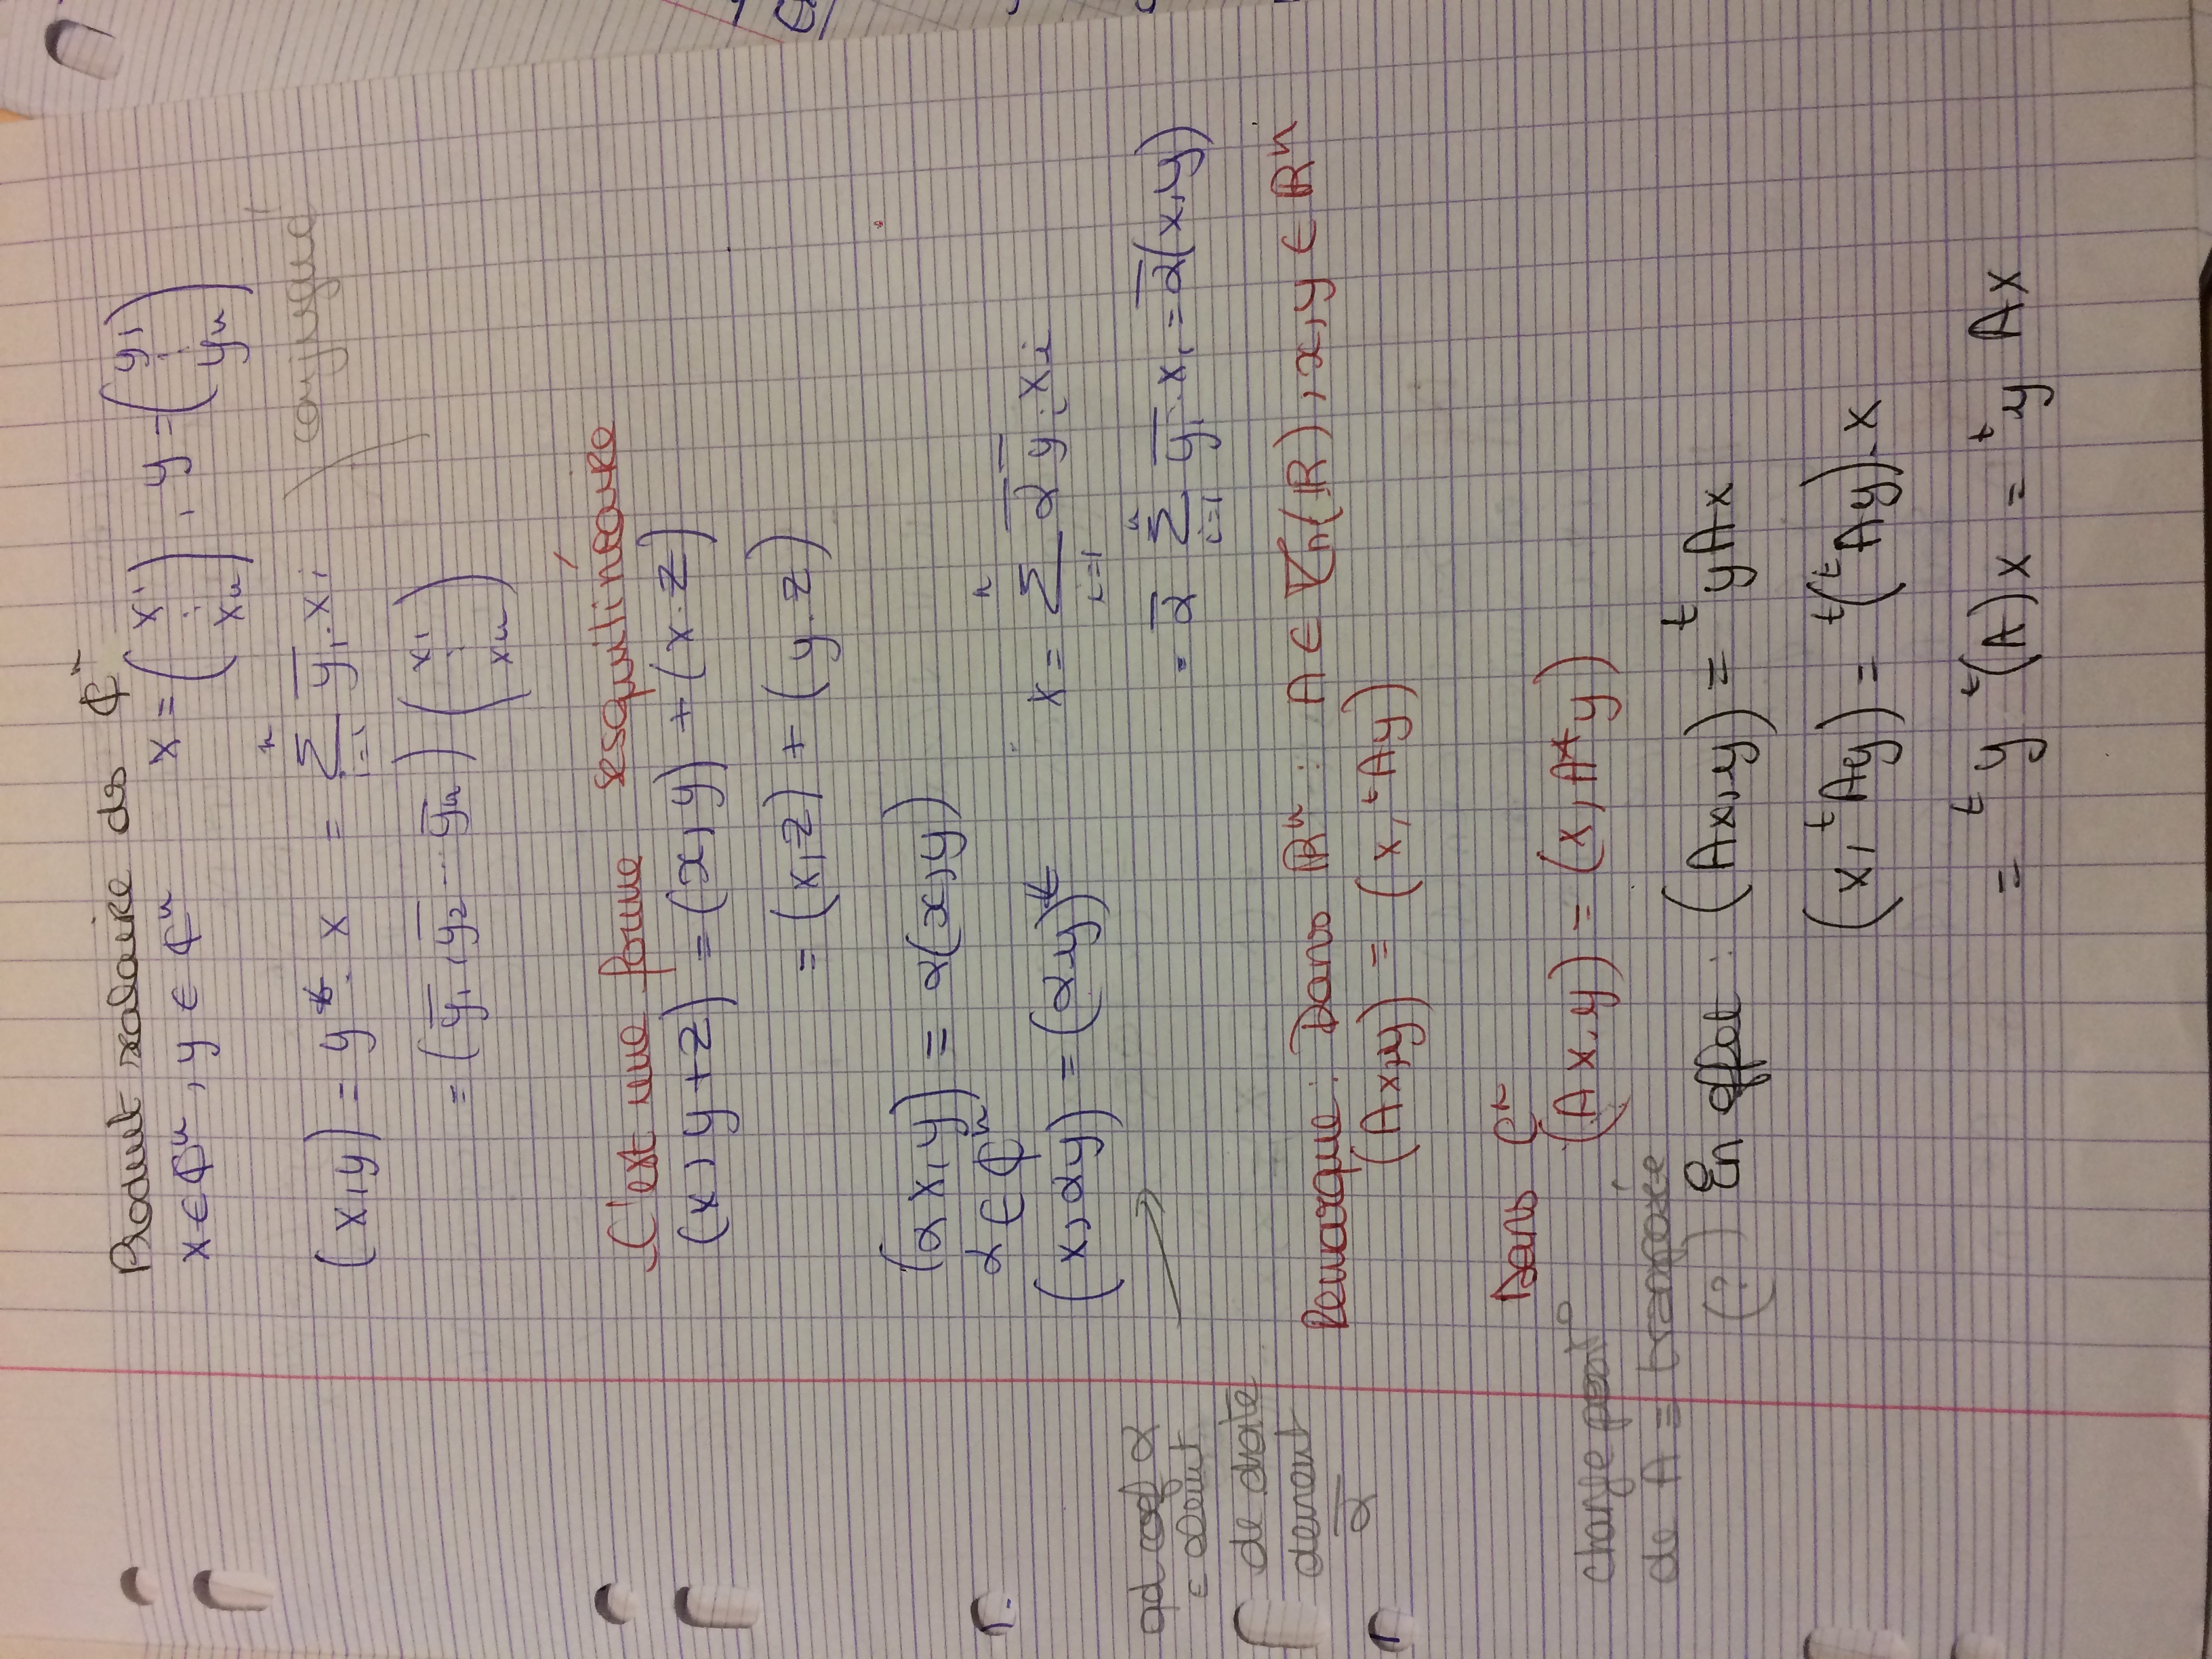 Produit scalaire ds ℂⁿ
x ∈ ℂⁿ, y ∈ ℂⁿ x = (x₁ ⋮ xₙ), y = (y₁ ⋮ yₙ)
(x,y) = y*. x = Σⁿᵢ₌₁ ȳᵢ.xᵢ conjugué
= (ȳ₁, ȳ₂ ... ȳₙ) (x₁ ⋮ xₙ)
C'est une forme sesquilinéaire
(x, y+z) = (x,y) + (x.z)
= (x,z) + (y.z)
(αx,y) = α(x,y)
α ∈ ℂⁿ
(x,αy) = (αy)* x = Σⁿᵢ₌₁ ᾱ ȳᵢ xᵢ
= ᾱ Σⁿᵢ₌₁ ȳᵢ.xᵢ = ᾱ(x,y)
qd coef α
de droite
devient
ᾱ
Remarque : Dans ℝⁿ : A ∈ (ℝ), x,y ∈ ℝⁿ
(Ax,y) = (x, ᵗAy)
Dans ℂⁿ
(Ax.y) = (x, A*y)
change
de A = transposée
(?)
En effet : (Ax,y) = ᵗyAx
(x, ᵗAy) = ᵗ(ᵗAy).x
= ᵗy ᵗ(A)x = ᵗy Ax